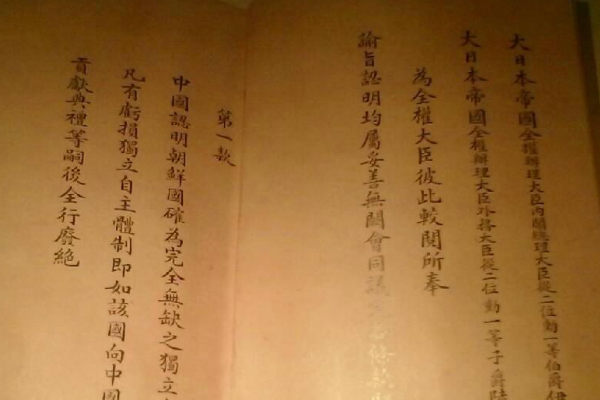 大日本帝國全權辦理大臣內閣總理大臣從二位勳一等伯爵伊
大日本帝國全權辦理大臣外務大臣從二位勳一等子爵陸
為全權大臣彼此較閱所奉
諭旨認明均屬妥善無闕會同議
第一款
中國認明朝鮮國確為完全無缺之獨立
凡有虧損獨立自主體制即如該國向中國
貢獻典禮等嗣後全行廢絕